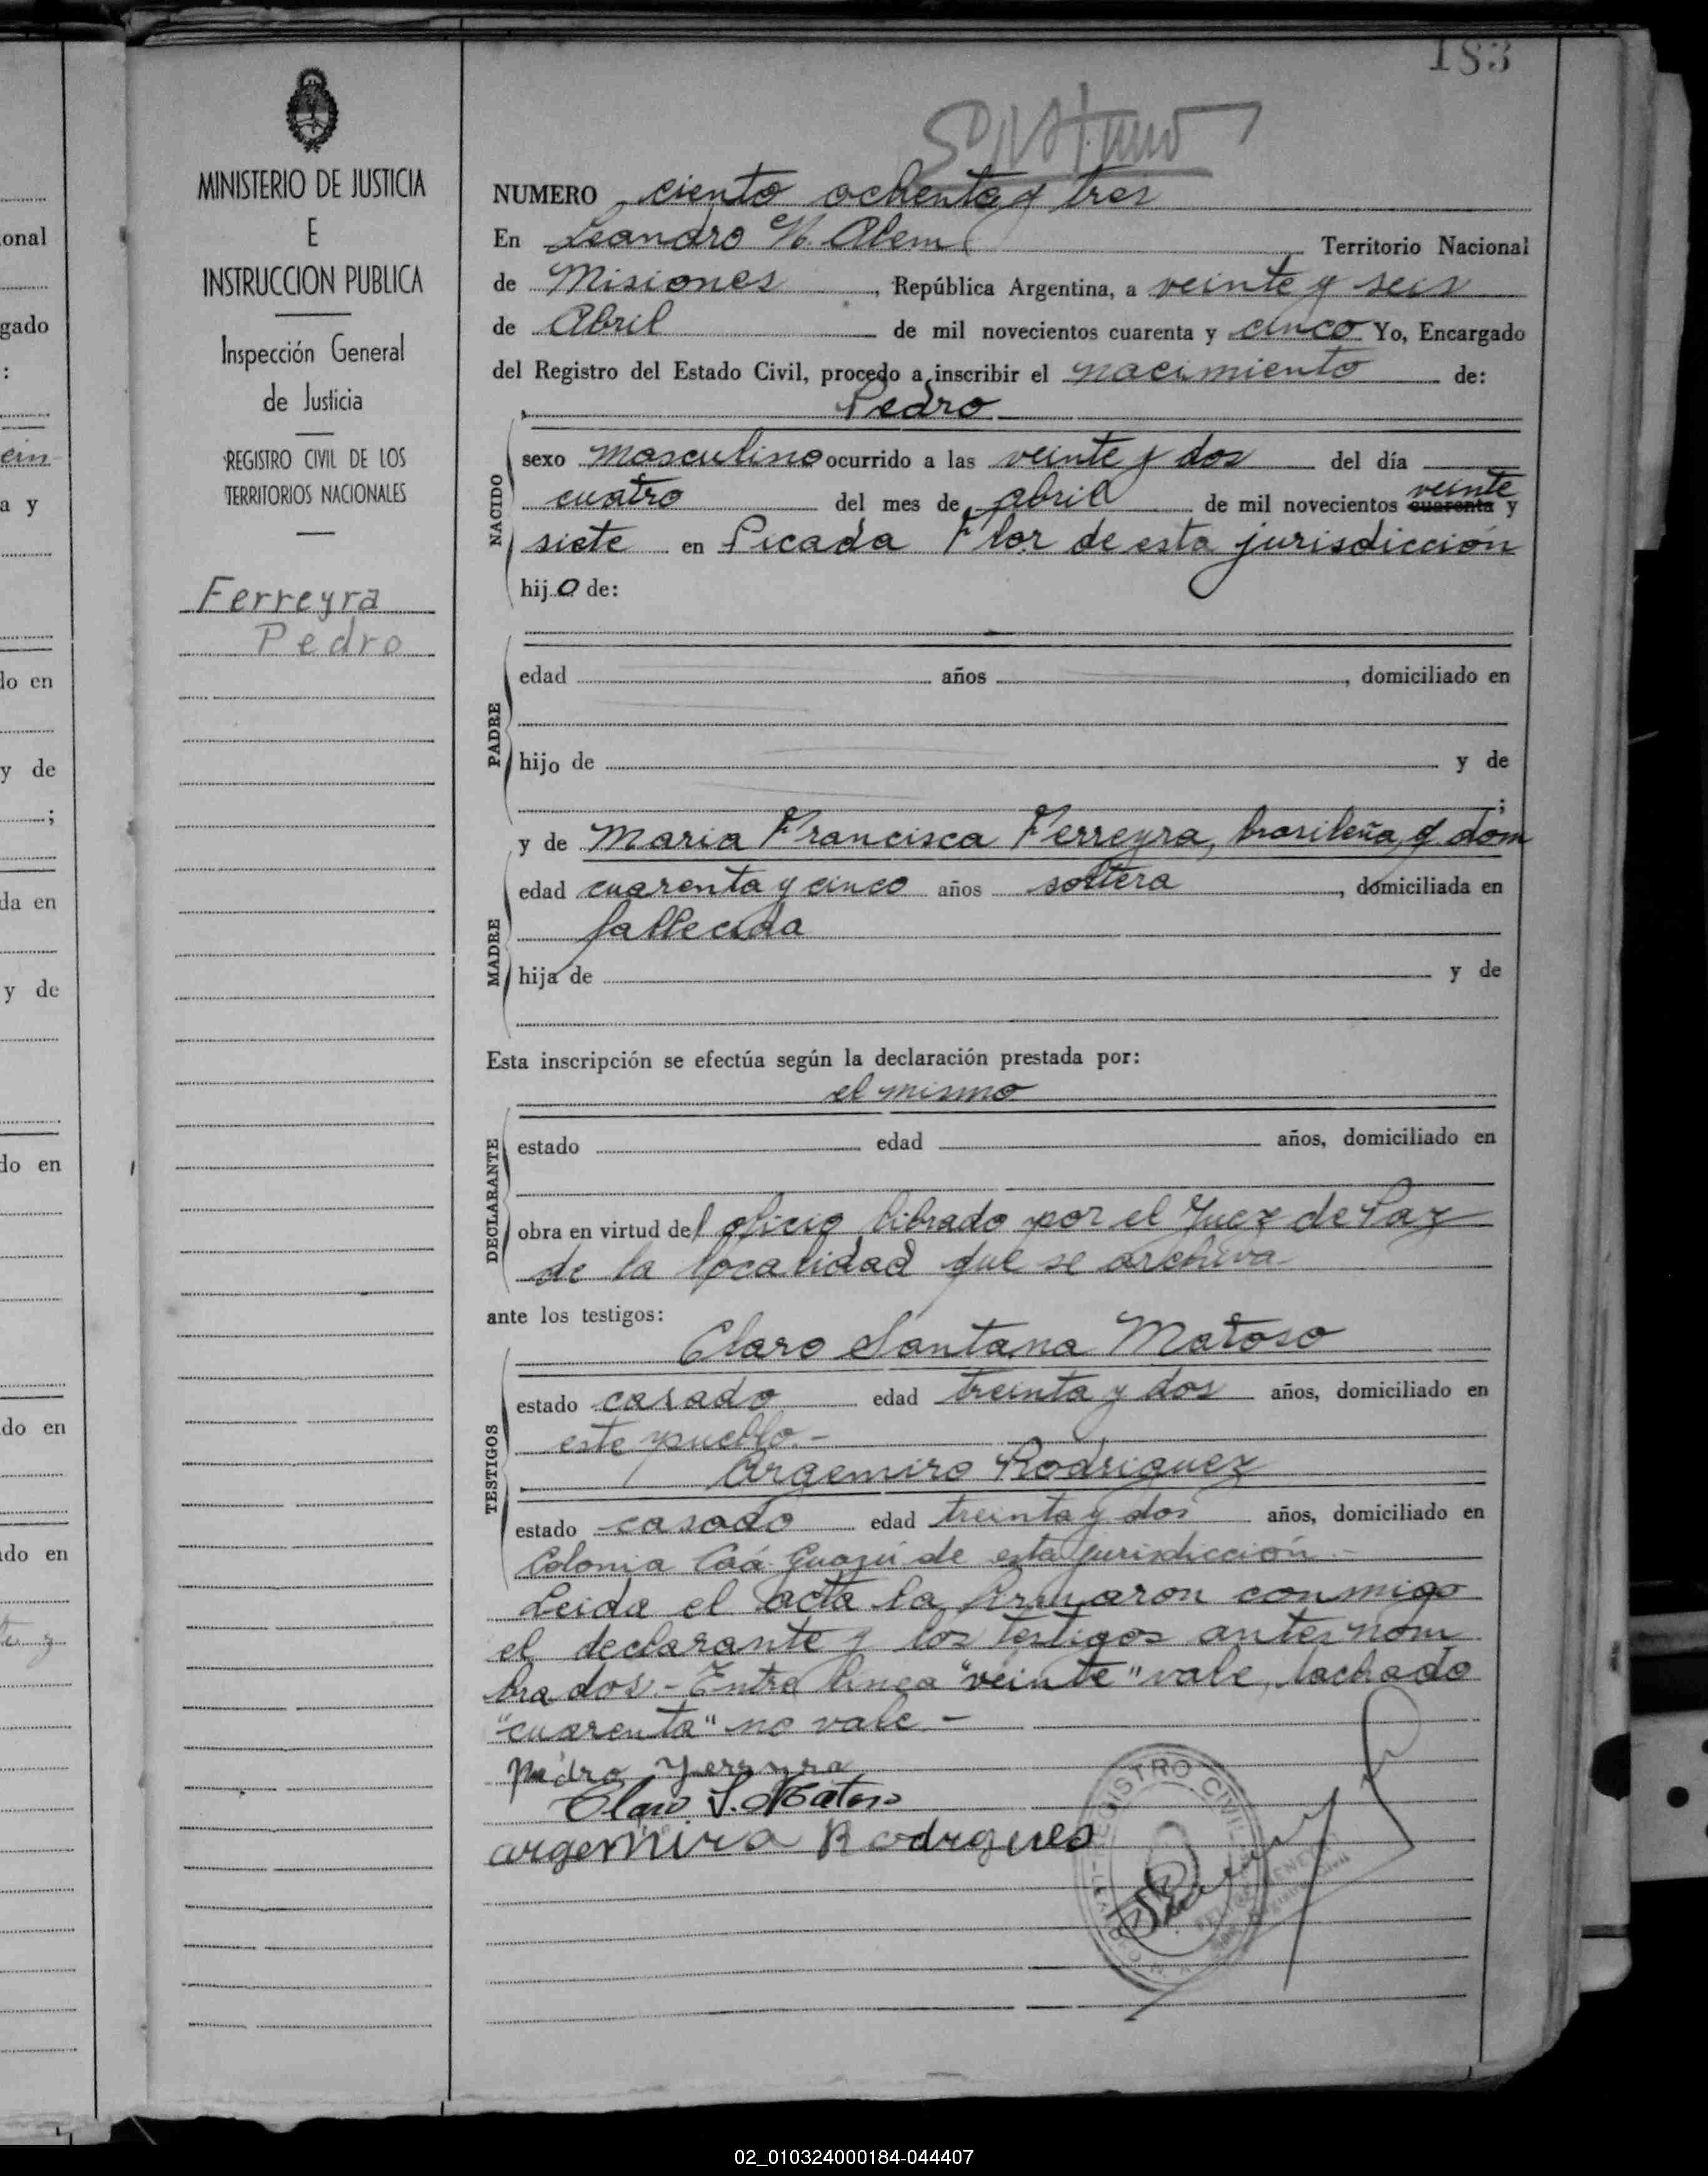 183
MINISTERIO DE JUSTICIA
E
INSTRUCCION PUBLICA
Inspección General
de Justicia
REGISTRO CIVIL DE LOS
TERRITORIOS NACIONALES
Ferreyra
Pedro
NUMERO ciento ochenta y tres
En Leandro N. Alem Territorio Nacional
de Misiones, República Argentina, a veinte y seis
de Abril de mil novecientos cuarenta y cinco Yo, Encargado
del Registro del Estado Civil, procedo a inscribir el nacimiento de:
Pedro
NACIDO
sexo masculino ocurrido a las veinte y dos del día
cuatro del mes de abril de mil novecientos cuarenta veinte y
siete en Picada Flor de esta jurisdicción
hijo de:
PADRE
edad años , domiciliado en
hijo de y de
;
MADRE
y de Maria Francisca Ferreyra, brasileña, q. dom
edad cuarenta y cinco años soltera , domiciliada en
fallecida
hija de y de
Esta inscripción se efectúa según la declaración prestada por:
el mismo
DECLARANTE
estado edad años, domiciliado en
obra en virtud del oficio librado por el Juez de Paz
de la localidad que se archiva
ante los testigos:
Claro Santana Matoso
TESTIGOS
estado casado edad treinta y dos años, domiciliado en
este pueblo.-
Argemiro Rodriguez
estado casado edad treinta y dos años, domiciliado en
Colonia Caá Guazú de esta jurisdicción.-
Leida el acta la firmaron conmigo
el declarante y los testigos antes nom
brados.- Entre linea "veinte" vale, tachado
"cuarenta" no vale.-
Pedro Ferreyra
Claro S. Matoso
argemira Rodrgues
REGISTRO CIVIL
onal
gado
:
ein
a y
lo en
y de
;
da en
y de
do en
do en
do en
02_010324000184-044407